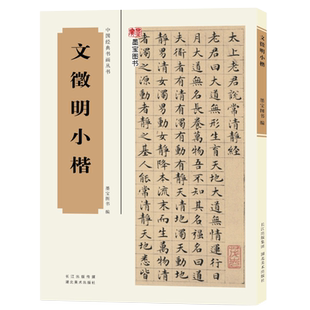 中国经典书画丛书
文徵明小楷
墨宝图书 编
长江出版传媒
湖北美术出版社
墨宝图书
太上老君說常清靜經
老君曰大道無形生育天地大
道無情運行日月大道無名長
養萬物吾不知其名強名曰道
夫道者有清有濁有動有靜天
清地濁天動地靜男清女濁男
動女靜降本流末而生萬物清
者濁之源動者靜之基人能常清靜天地悉皆